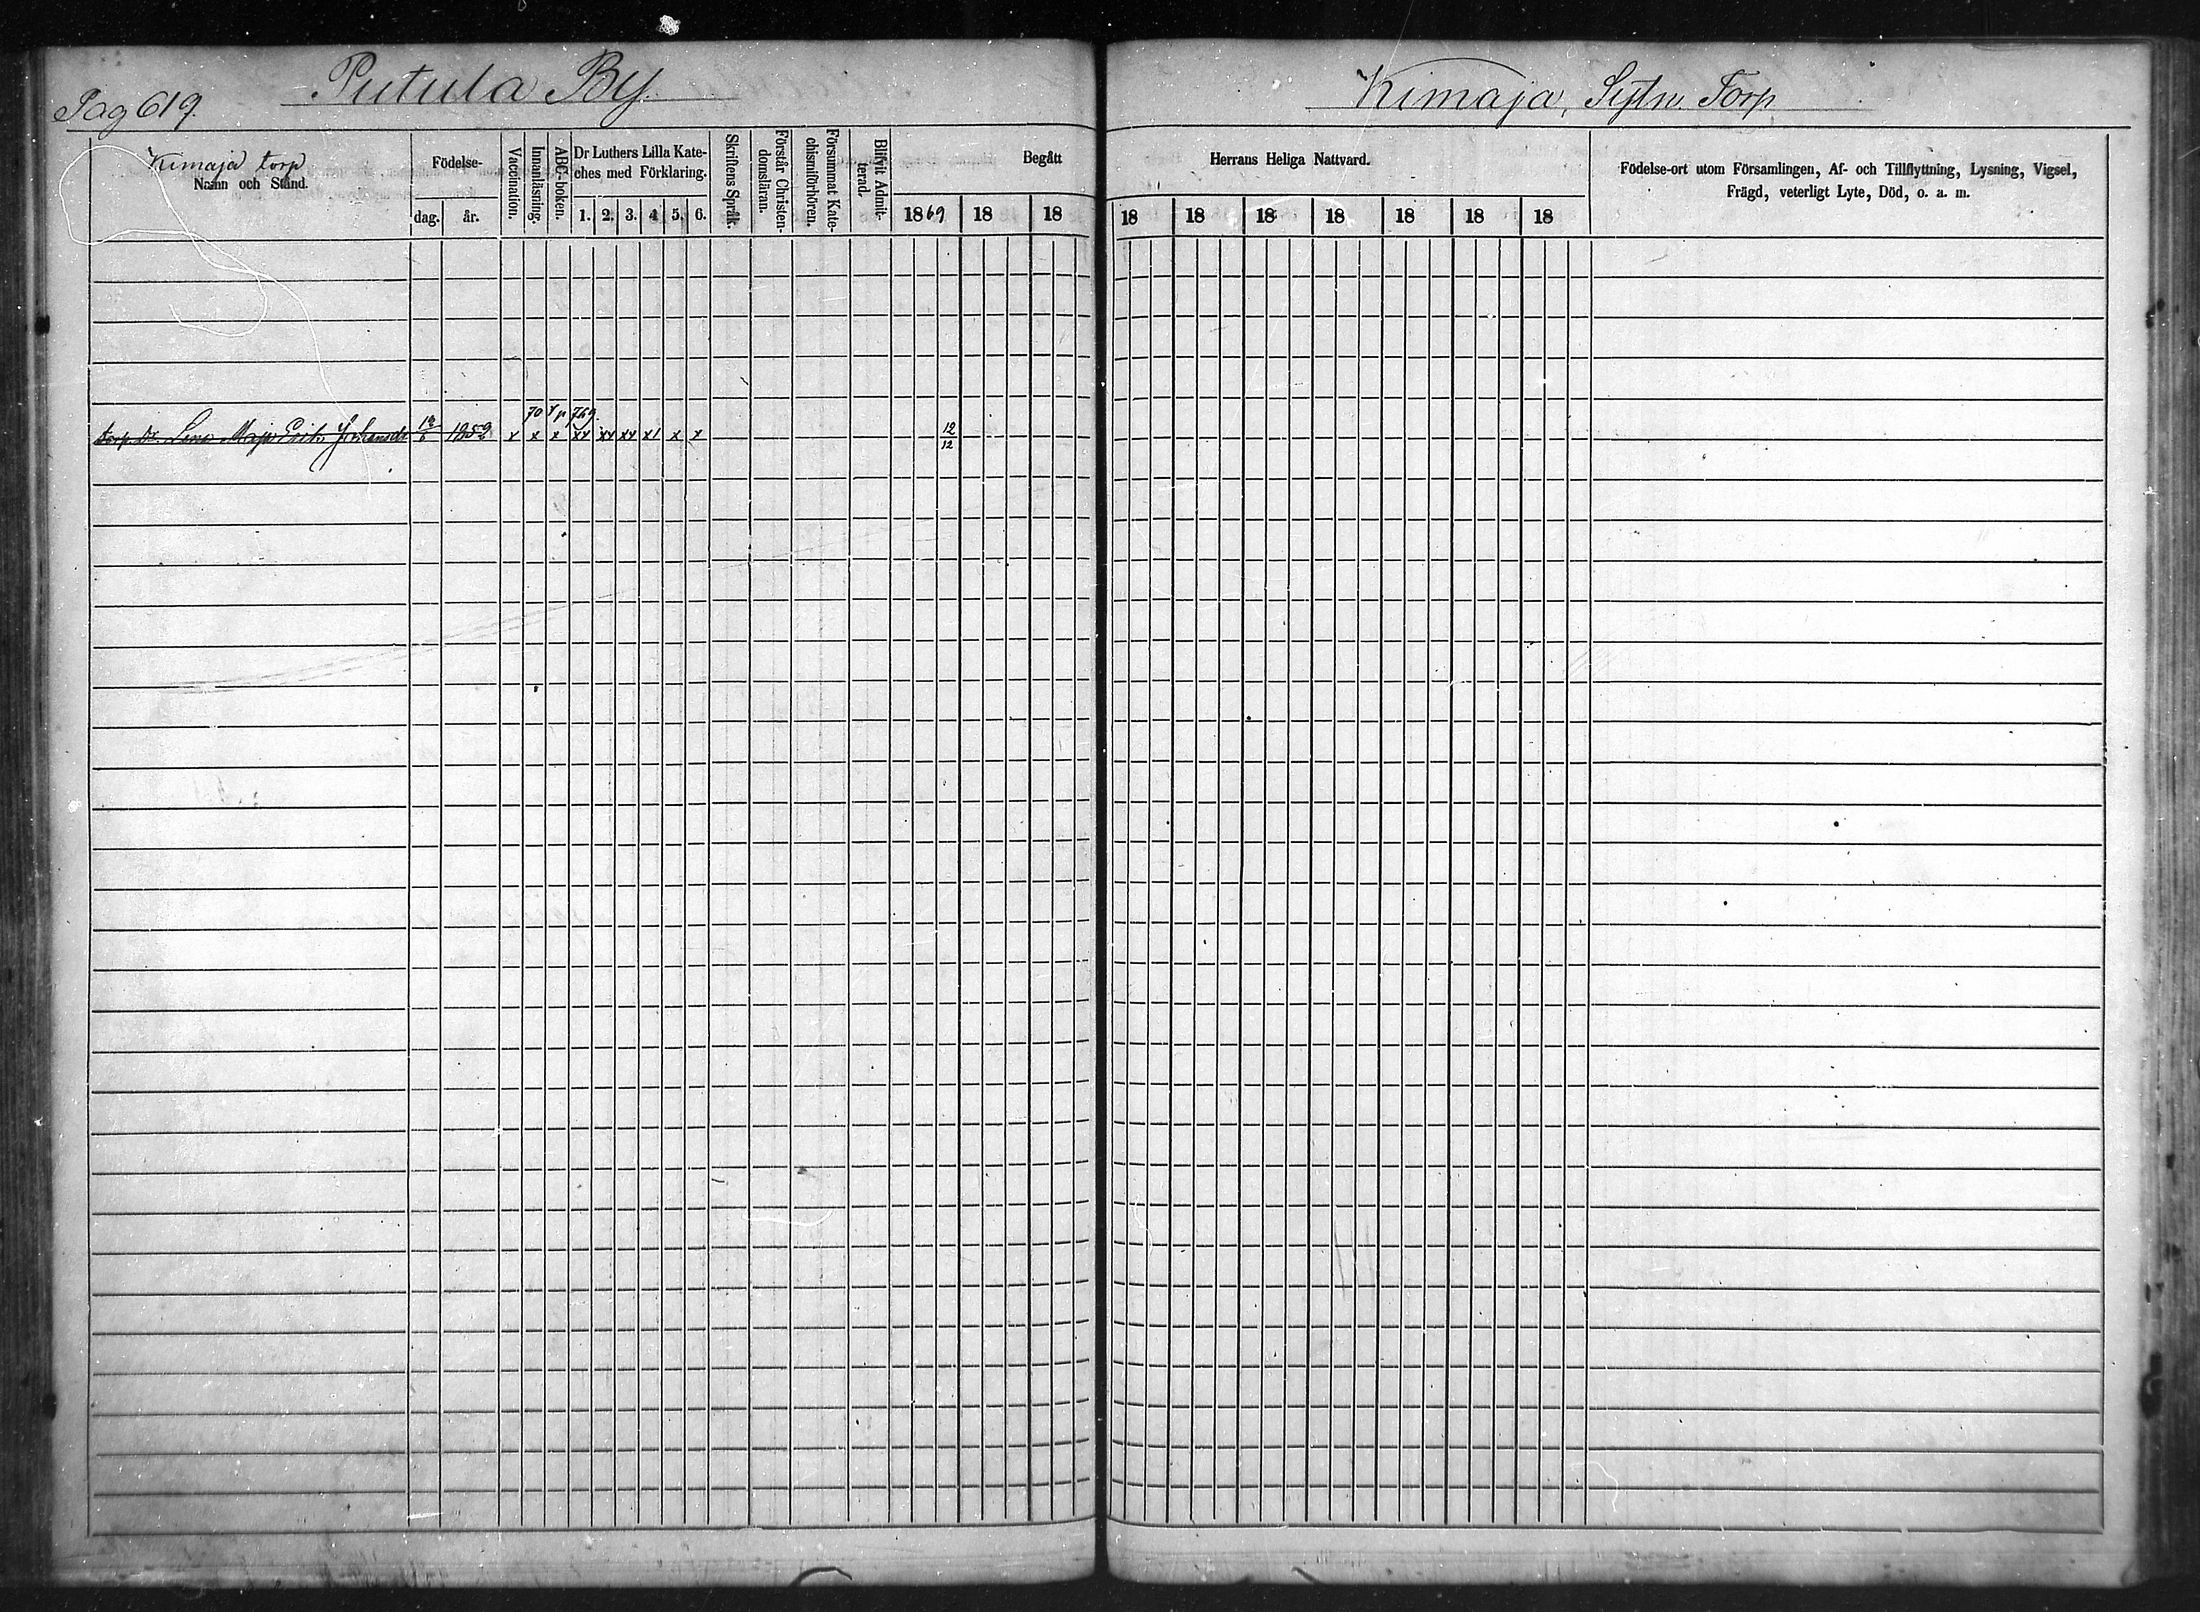 Pag 619.
Putula By.
Kimaja, Torp
Kimaja torp
Namn och Stånd.
Födelse-
dag.
år.
Vaccination.
Innanläsning.
ABC-boken.
Dr Luthers Lilla Kate-
ches med Förklaring.
1. 2. 3. 4 5. 6.
Skriftens Språk.
Förstår Christen-
domsläran.
Försummat Kate-
chismiförhören.
Blifvit Admit-
terad.
Begått
Herrans Heliga Nattvard.
1869 18 18 18 18 18 18 18 18 18
Födelse-ort utom Församlingen, Af- och Tillflyttning, Lysning, Vigsel,
Frägd, veterligt Lyte, Död, o. a. m.
70
torp. Dr. Lena Maja Erik Johansdr 1852 x x x xx x1 x x 12/12